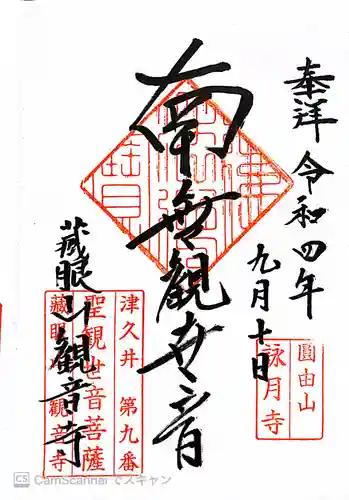 奉拝 令和四年
九月十日
南無観世音
蔵眼山観音寺
圓由山
詠月寺
津久井 第九番
聖観世音菩薩
蔵眼山 観音寺
CS CamScanner でスキャン